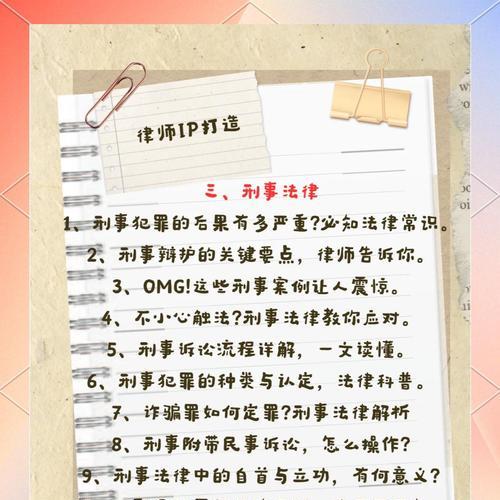 律师IP打造
三、刑事法律
1、刑事犯罪的后果有多严重?必知法律常识。
2、刑事辩护的关键要点，律师告诉你。
3、OMG!这些刑事案例让人震惊。
4、不小心触法?刑事法律教你应对。
5、刑事诉讼流程详解，一文读懂。
6、刑事犯罪的种类与认定，法律科普。
7、诈骗罪如何定罪?刑事法律解析
8、刑事附带民事诉讼，怎么操作?
9、刑事法律中的自首与立功，有何意义?